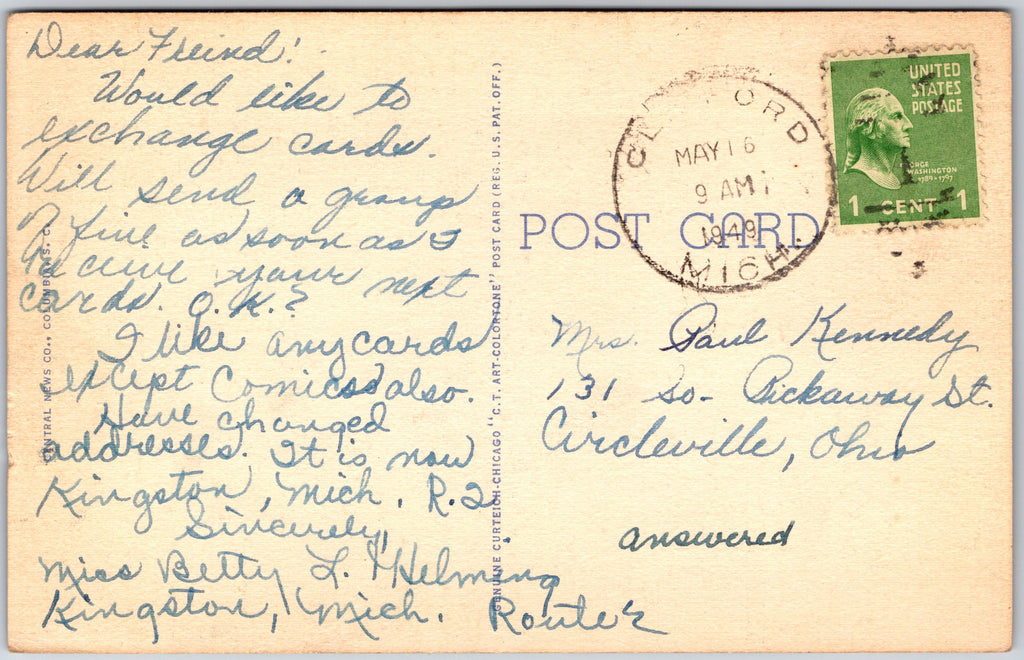 Dear Freind!
Would like to
exchange cards.
Will send a group
of five as soon as I
receive your next
cards. O.K.?
I like any cards
except Comics also.
Have changed
addresses. It is now
Kingston, Mich. R.2
Sincerely,
Miss Betty L. Helming
Kingston, Mich. Route 2
CENTRAL NEWS CO., COLUMBUS,
GENUINE CURTEICH-CHICAGO "C.T. ART-COLORTONE" POST CARD (REG. U.S. PAT. OFF.)
POST CARD
MAY 16
9 AM
1949
MICH.
UNITED
STATES
POSTAGE
GEORGE
WASHINGTON
1789-1797
1 CENT 1
Mrs. Paul Kennedy
131 So- Pickaway St.
Circleville, Ohio
answered